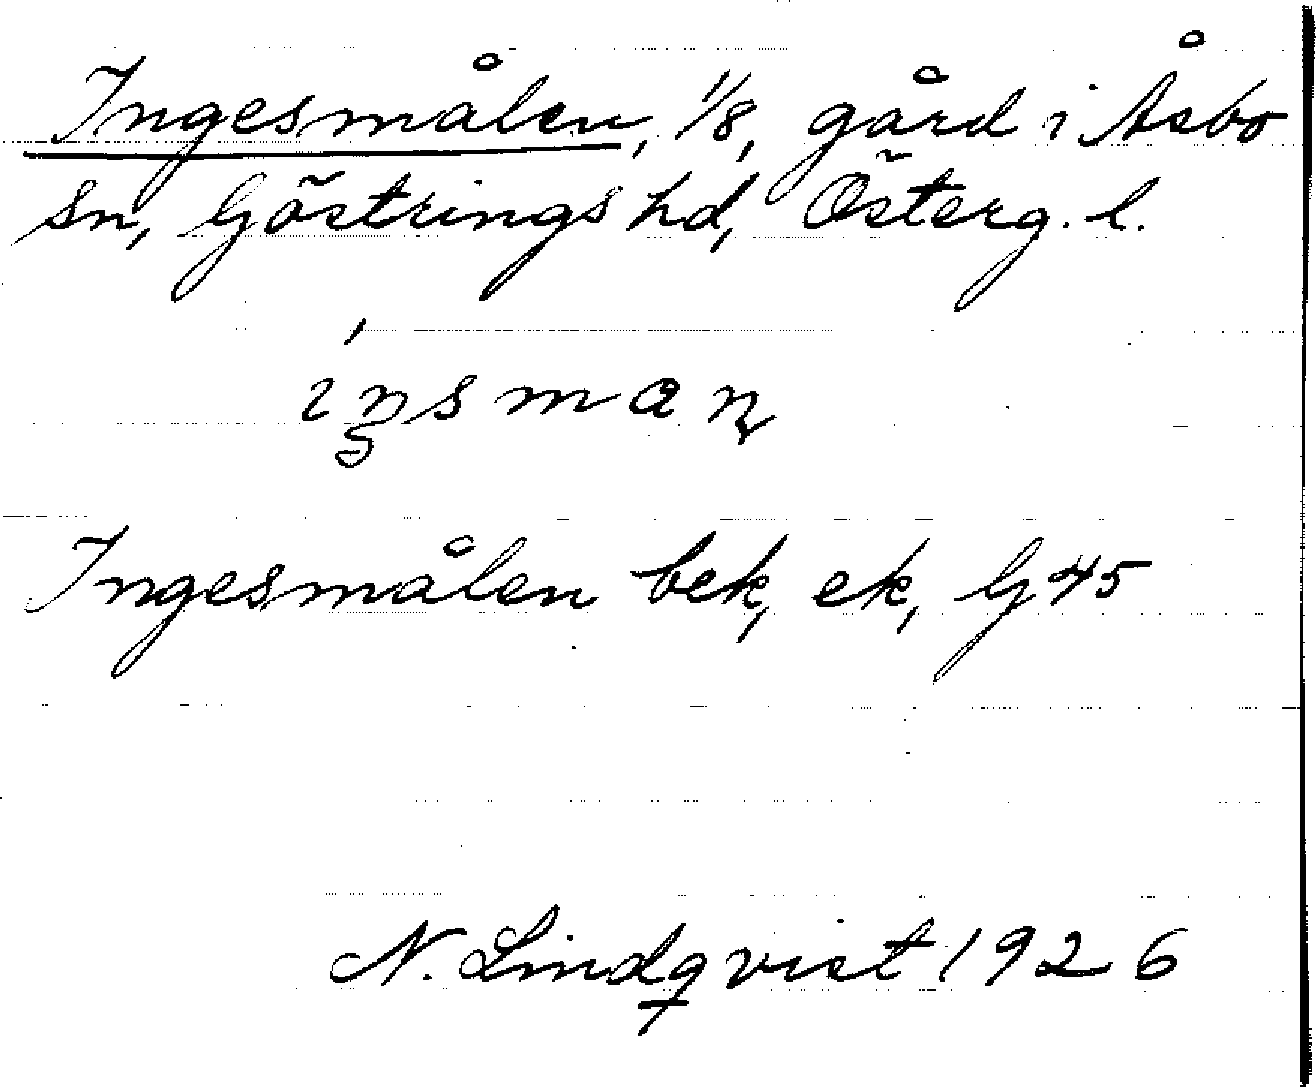 Ingesmålen, 1/8, gård i Åsbo
sn, Göstrings hd, Österg. l.
Ingesmålen bek, ek, G 45
N. Lindqvist 1926